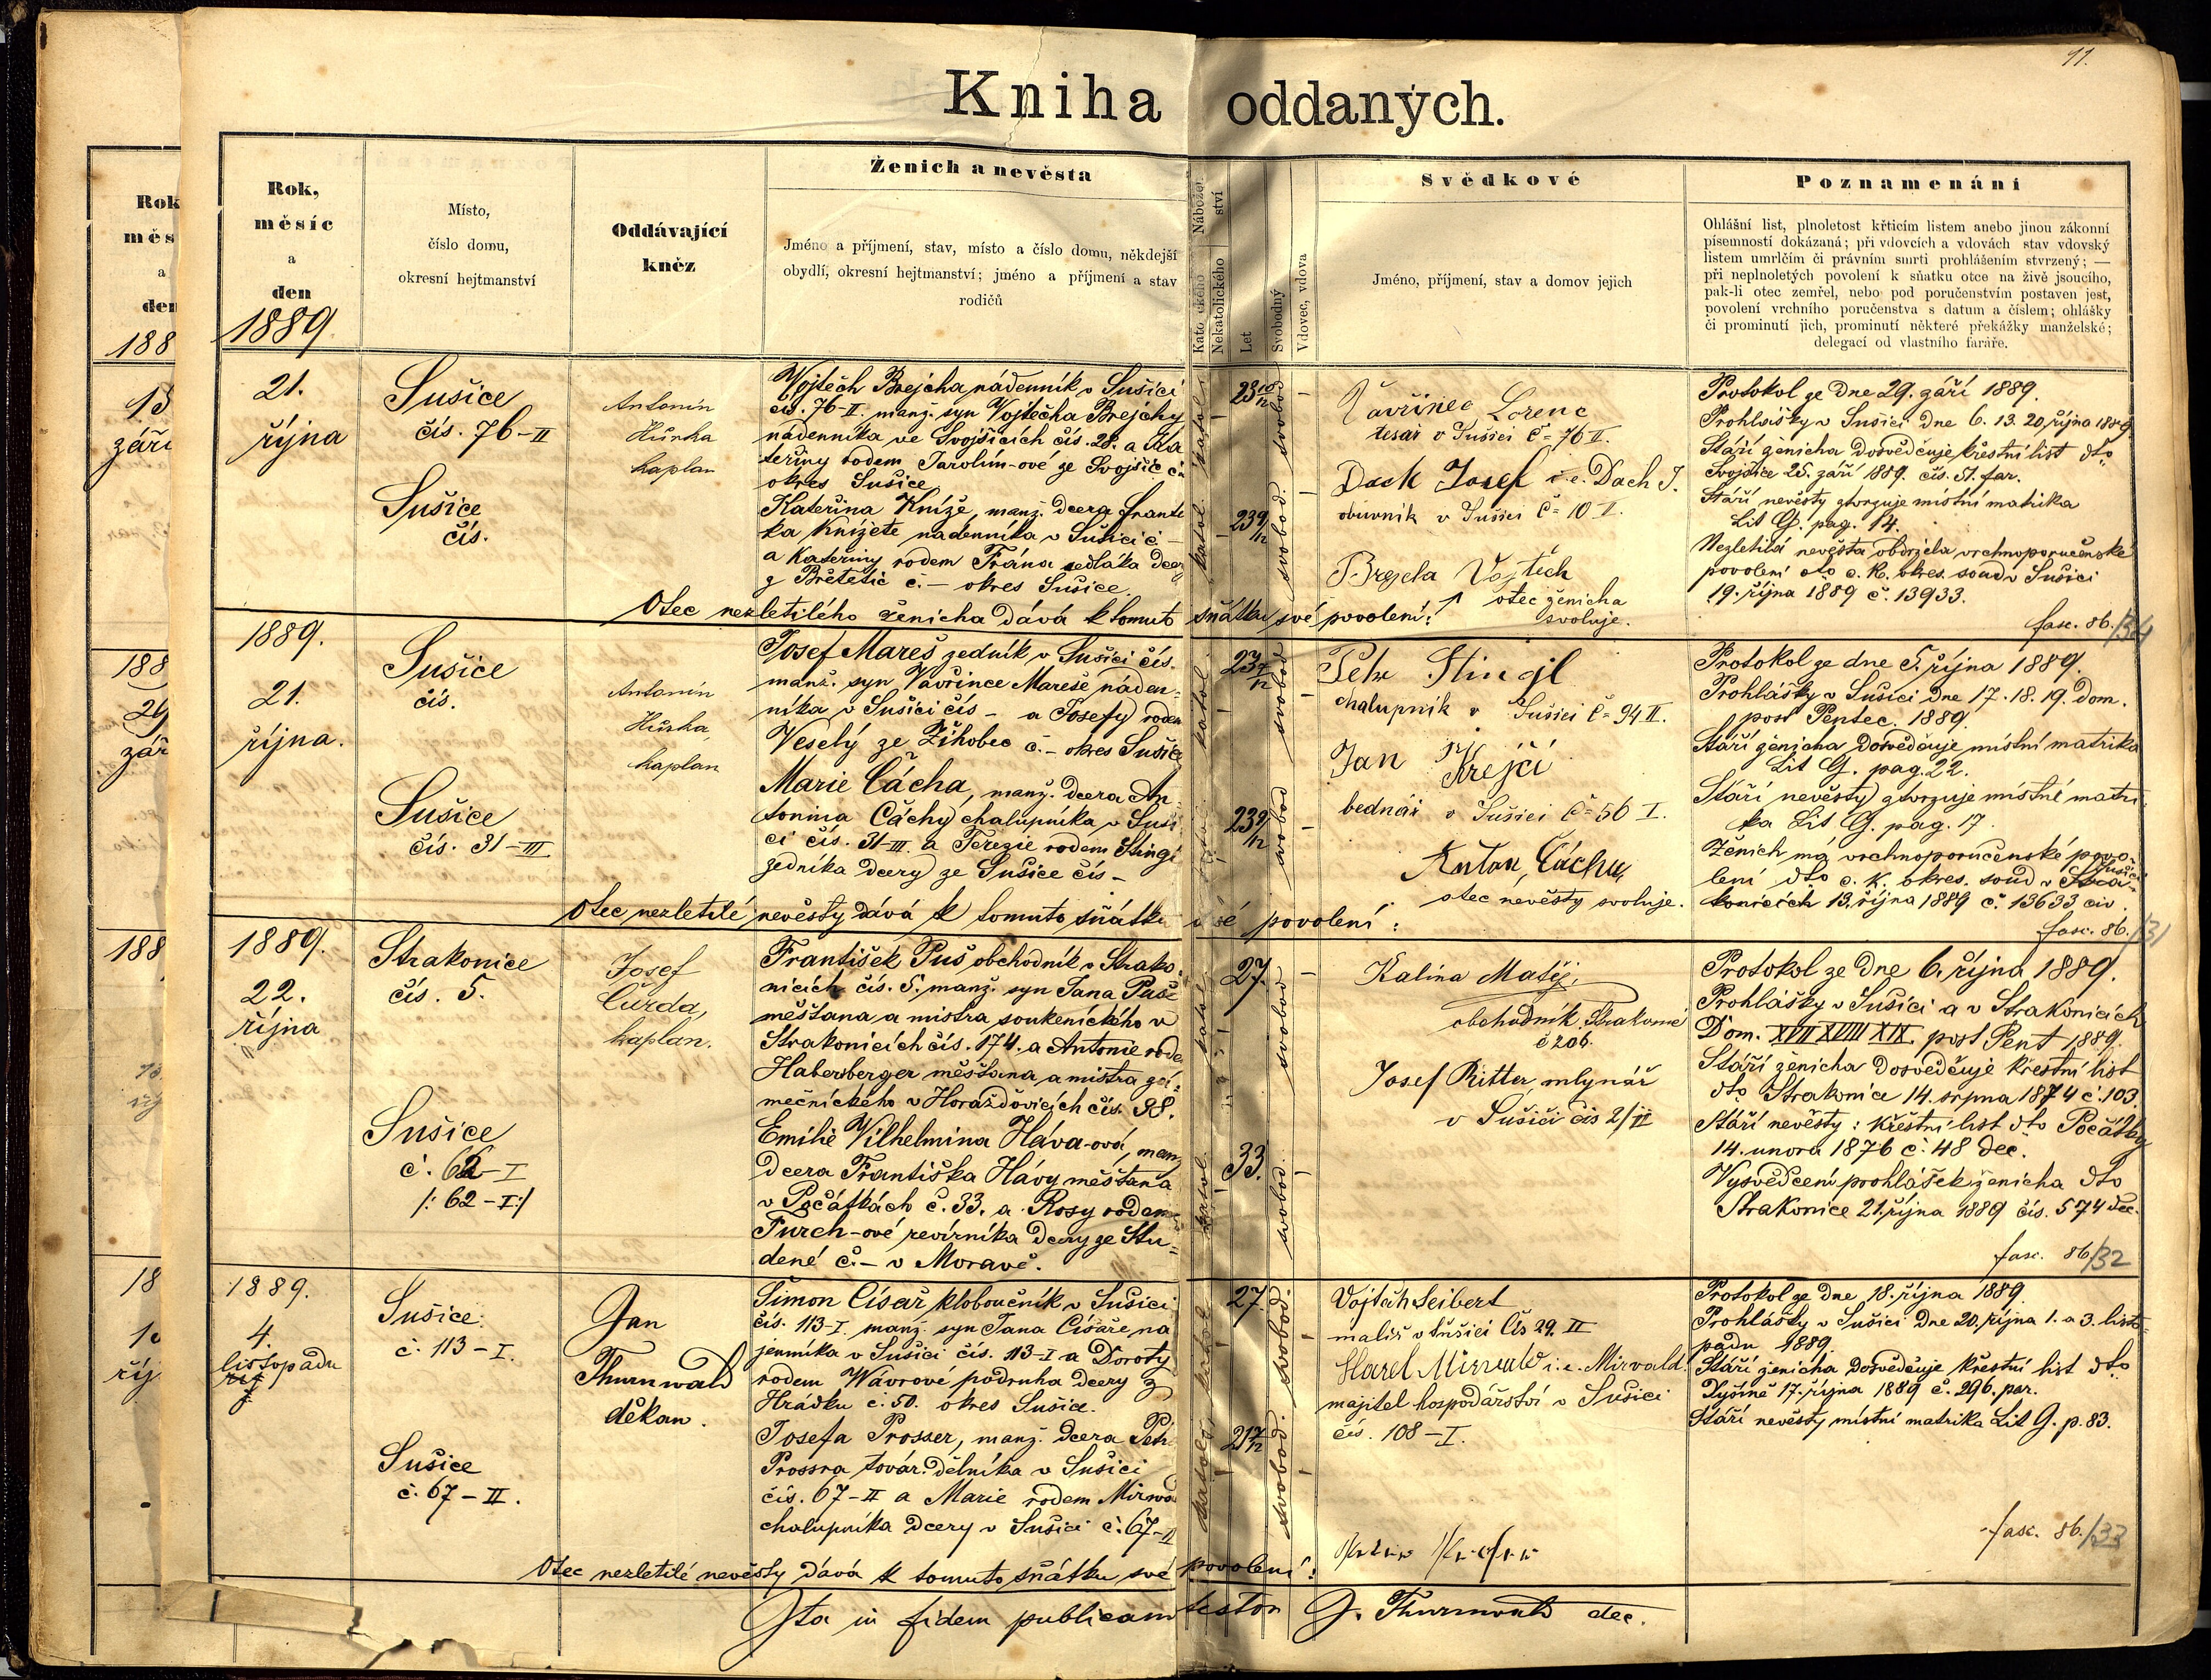 11.
Kniha oddaných.
Rok,
měsíc
a
den
1889
Místo,
číslo domu,
okresní hejtmanství
Oddávající
kněz
Ženich a nevěsta
Jméno a příjmení, stav, místo a číslo domu, někdejší
obydlí, okresní hejtmanství; jméno a příjmení a stav
rodičů
Nekatolického
Let
Svobodný
Vdovec, vdova
Svědkové
Jméno, příjmení, stav a domov jejich
Poznamenání
Ohlášní list, plnoletost křticím listem anebo jinou zákonní
písemností dokázaná; při vdovcích a vdovách stav vdovský
listem umrlčím či právním smrti prohlášením stvrzený; —
při neplnoletých povolení k sňatku otce na živě jsoucího,
pak-li otec zemřel, nebo pod poručenstvím postaven jest,
povolení vrchního poručenstva s datum a číslem; ohlášky
či prominutí jich, prominutí některé překážky manželské;
delegací od vlastního faráře.
21.
října
Sušice
čís. 76-II
Sušice
čís.
Antonín
Hůrka
kaplan
Vojtěch Brejcha, nádenník v Sušici
čís. 76-II. manž. syn Vojtěcha Brejchy
nádenníka ve Svojšicích čís. 28. a Ka
teřiny rodem Jarolím-ové ze Svojšic č.
okres Sušice
Kateřina Kníže, manž. dcera Frant
ka Knížete nádenníka v Sušici č. –
a Kateřiny rodem Frána sedláka dcery
z Břetětic č. – okres Sušice.
Otec nezletilého ženicha dává k tomuto sňatku své povolení:
23 10/12
23 9/12
katol. svobod.
Vavřinec Lorenc
tesař v Sušici č= 76 II.
Dach Josef i.e. Dach J.
obuvník v Sušici č= 10 I.
Brejcha Vojtěch
↑ otec ženicha
svoluje.
Protokol ze dne 29. září 1889.
Prohlášky v Sušici dne 6. 13. 20. října 1889
Stáří ženicha dosvědčuje křestní list dto
Svojšice 25. září 1889. čís. 51. far.
Stáří nevěsty stvrzuje místní matrika
Lit G. pag. 14.
Nezletilá nevěsta obdržela vrchnoporučenské
povolení dto c. k. okres. soud v Sušici
19. října 1889 č. 13933.
fasc. 86./34
1889.
21.
října.
Sušice
čís.
Sušice
čís. 31-III
Antonín
Hůrka,
kaplan
Josef Mareš zedník v Sušici čís.
manž. syn Vavřince Mareše náden=
níka v Sušici čís – a Josefy rodem
Veselý ze Žihobec č. – okres Sušice
Marie Čácha, manž. dcera An=
tonína Čáchy chalupníka v Suši
ci čís. 31-III. a Terezie rodem Stingl
zedníka dcery ze Sušice čís –
Otec nezletilé nevěsty dává k tomuto sňatku své povolení:
23 7/12
23 9/12
katol. svobod
Petr Stingl
chalupník v Sušici č= 94 II.
Jan Krejčí
bednář v Sušici č= 56 I.
Anton Čácha,
otec nevěsty svoluje.
Protokol ze dne 5. října 1889.
Prohlášky v Sušici dne 17. 18. 19. Dom.
post Pentec. 1889.
Stáří ženicha dosvědčuje místní matrika
Lit G. pag. 22.
Stáří nevěsty stvrzuje místní matri
ka Lit G. pag. 17.
Ženich má vrchnoporučenské povo=
lení dto c. k. okres. soud v Sušici Stra
konicích 13. října 1889 č. 13633 civ.
fasc. 86./31
1889.
22.
října
Strakonice
čís. 5.
Sušice
č. 62-I
/: 62-I :/
Josef
Čurda,
kaplan.
František Puš obchodník v Strako=
nicích čís. 5. manž. syn Jana Puše
měšťana a mistra soukenického v
Strakonicích čís. 174. a Antonie rode
Habersberger měšťana a mistra zá=
mečnického v Horažďovicích čís. 98.
Emilie Vilhelmina Háva-ová, manž
dcera Františka Hávy měšťana
v Počátkách č. 33. a Rosy rodem
Turch-ové revírníka dcery ze Stu=
dené č. – v Moravě.
27.
33.
katol. svobod.
Kalina Matěj,
obchodník Strakonic
č 206.
Josef Ritter, mlynář
v Sušici čís 2/II
Protokol ze dne 6. října 1889.
Prohlášky v Sušici a v Strakonicích
Dom. XVII XVIII XIX. post Pent 1889.
Stáří ženicha dosvědčuje křestní list
dto Strakonice 14. srpna 1874 č. 103.
Stáří nevěsty: křestní list dto Počátky
14. unora 1876 č. 48 dec.
Vysvědčení prohlášek ženicha dto
Strakonice 21. října 1889 čís. 574 dec.
fasc. 86/32
1889.
4.
listopadu
Sušice.
č. 113-I.
Sušice
č. 67-II.
Jan
Thurnwald
děkan.
Šimon Císař, kloboučník v Sušici
čís. 113-I. manž. syn Jana Císaře ná
jemníka v Sušici čís. 113-I a Doroty
rodem Vávrové podruha dcery z
Hrádku č. 50. okres Sušice.
Josefa Prosser, manž. dcera Petr
Prossra továr. dělníka v Sušici
čís. 67-II a Marie rodem Mirwa
chalupníka dcery v Sušici č. 67-II
Otec nezletilé nevěsty dává k tomuto sňatku své povolení:
27.
21 7/12
katol. svobod.
Vojtěch Seibert
malíř v Sušici čís 29. II
Karel Mirvald i. e. Mirvald.
majitel hospodářství v Sušici
čís. 108-I.
Protokol ze dne 18. října 1889
Prohlášky v Sušici dne 20. října 1. a 3. listo=
padu 1889.
Stáří ženicha dosvědčuje křestní list dto
17. října 1889 č. 296. par.
Stáří nevěsty místní matrika Lit G. p. 83.
fasc. 86./33
Ita in fidem publicam testor J. Thurnwald dec.
Rok
měs
a
den
188
15
září
188
29
zář
188
18
10
říj